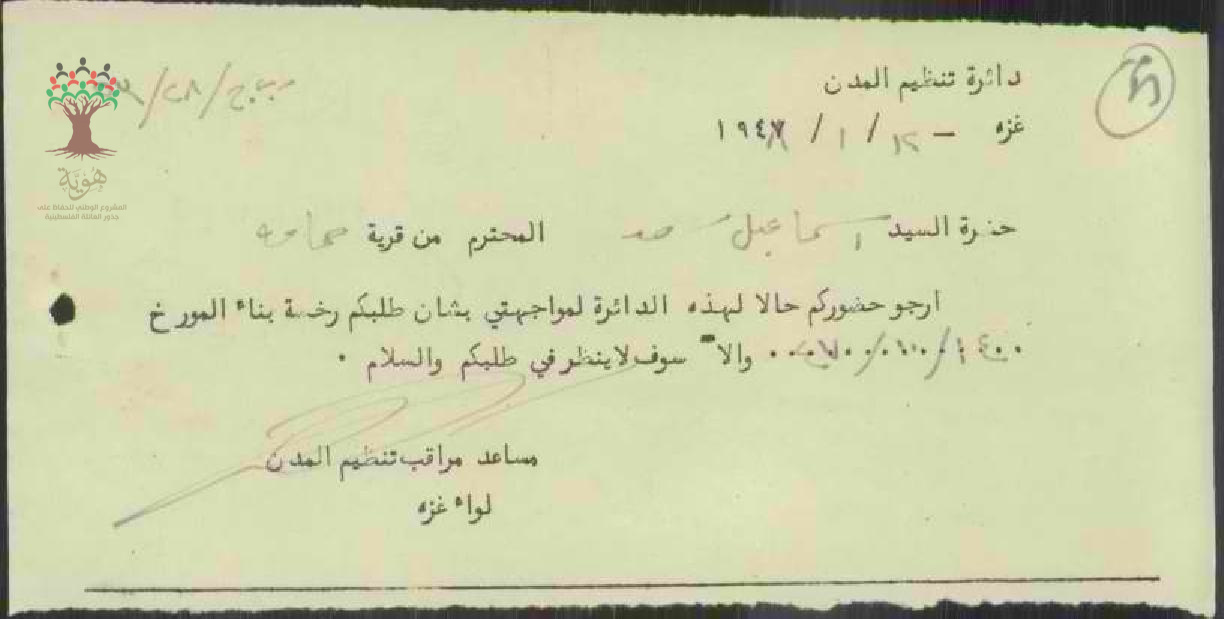 دائرة تنظيم المدن
غزه - ١٢ / ١ / ١٩٤٨
ب ج/٢٨/
حضرة السيد اسماعيل المحترم من قرية حمامه
ارجو حضوركم حالا لهذه الدائرة لمواجهتي بشان طلبكم رخصة بناء المورخ
والا سوف لاينظر في طلبكم والسلام .
مساعد مراقب تنظيم المدن
لواء غزه
هوية
المشروع الوطني للحفاظ على
جذور العائلة الفلسطينية